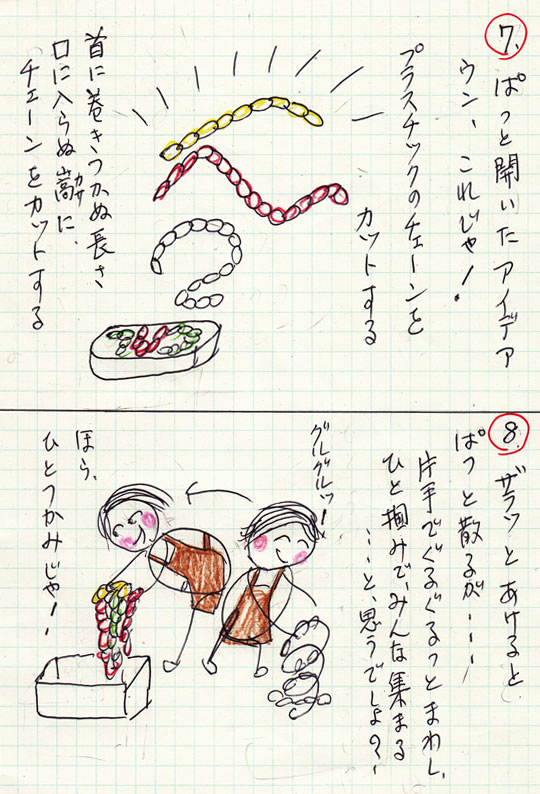 7.
ぱっと開いたアイデア
ウン、これじゃ！
プラスチックのチェーンを
カットする
首に巻きつかぬ長さ
口に入らぬ嵩に、
カサ
チェーンをカットする
8.
ザラッとあけると
ぱっと散るが・・・・
片手でぐるぐるっとまわし、
ひと掴みで、みんな集まる
・・・と、思うでしょ？
グルグルッー！
ほら、
ひとつかみじゃー！